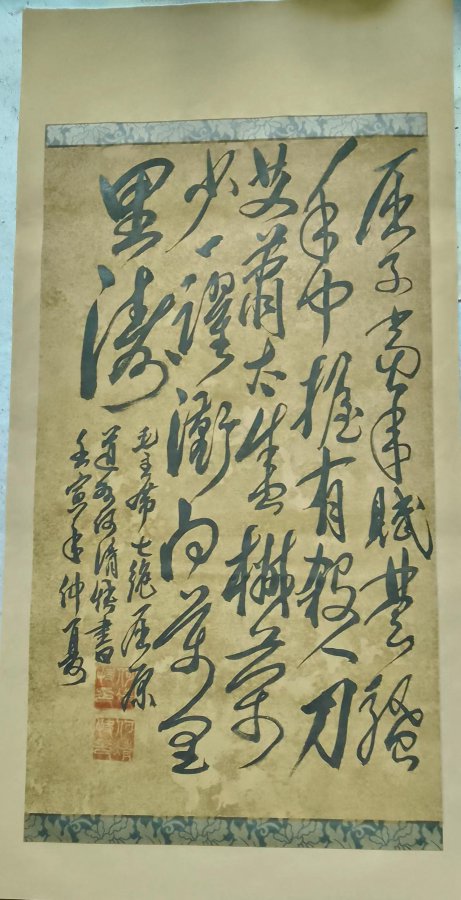 屈子當年賦楚騷
手中握有殺人刀
艾蕭太盛椒蘭
少一躍衝向萬里
里濤
毛主席七絕屈原
道州何清書
壬寅年仲夏